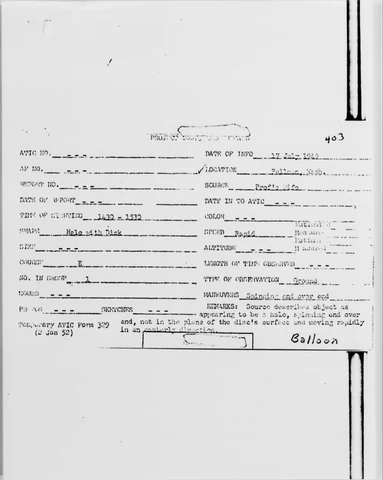 403
ATIC NO. - - - DATE OF INFO 17 July 1949
AF NO. - - - LOCATION Pullman, Wash.
REPORT NO. - - - SOURCE Prof's Wife
DATE OF REPORT - - - DATE IN TO ATIC - - -
TIME OF SIGHTING 1430 - 1530 COLOR - - -
SHAPE Halo with Disk SPEED Rapid
SIZE - - - ALTITUDE - - -
COURSE E LENGTH OF TIME OBSERVED - - -
NO. IN GROUP 1 TYPE OF OBSERVATION Ground
SOUND - - - MANEUVERS Spinning end over end
PHOTOS - - - SKETCHES - - -
REMARKS: Source describes object as
appearing to be a halo, spinning end over
end, not in the plane of the disc's surface and moving rapidly
in an easterly direction.
Temporary ATIC Form 329
(2 Jan 52)
Balloon